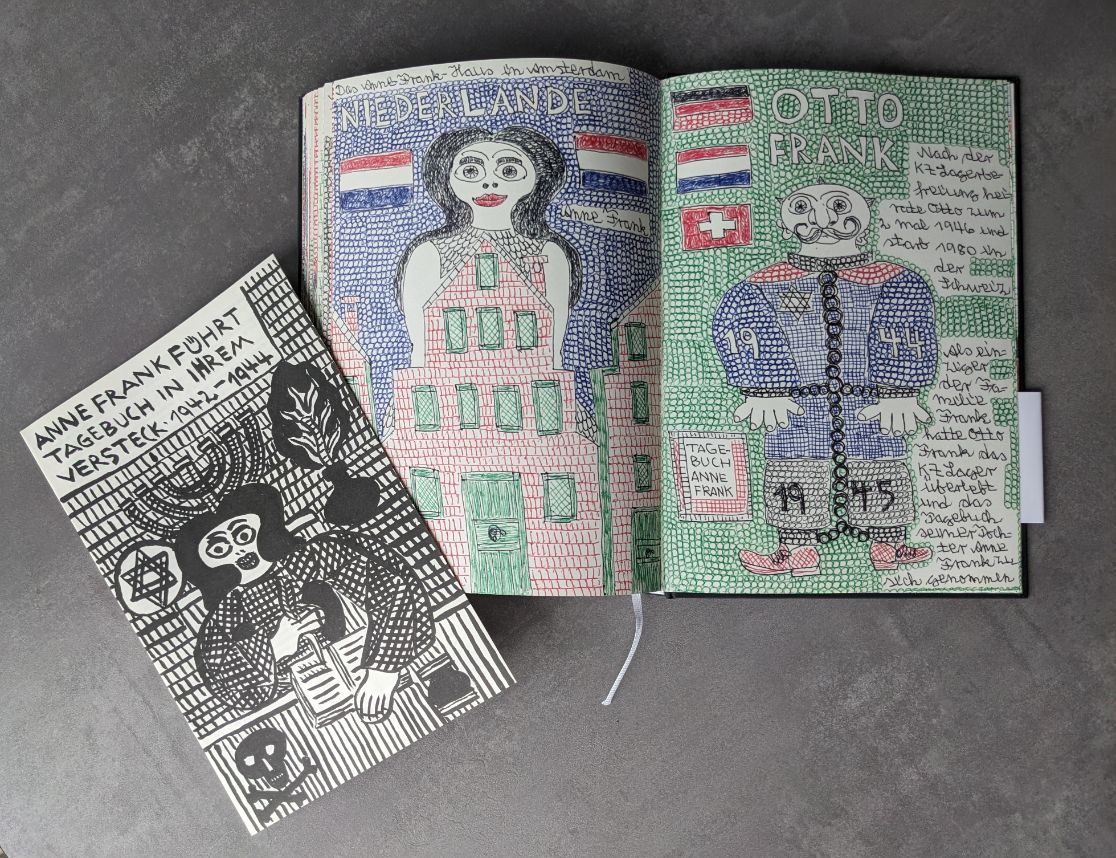 ANNE FRANK FÜHRT
TAGEBUCH IN IHREM
VERSTECK. 1942-1944
Das Anne-Frank-Haus in Amsterdam
NIEDERLANDE
Anne Frank
OTTO
FRANK
Nach der
KZ Lagerbe-
freiung hei-
rate Otto zum
2 mal 1946 und
starb 1980 in
der
Schweiz
19 44
Als ein-
ziger
der Fa-
milie
Frank
hatte Otto
Frank das
KZ Lager
überlebt
und das
Tagebuch
seiner Toch-
ter Anne
Frank zu
sich genommen
TAGE-
BUCH
ANNE
FRANK
19 45